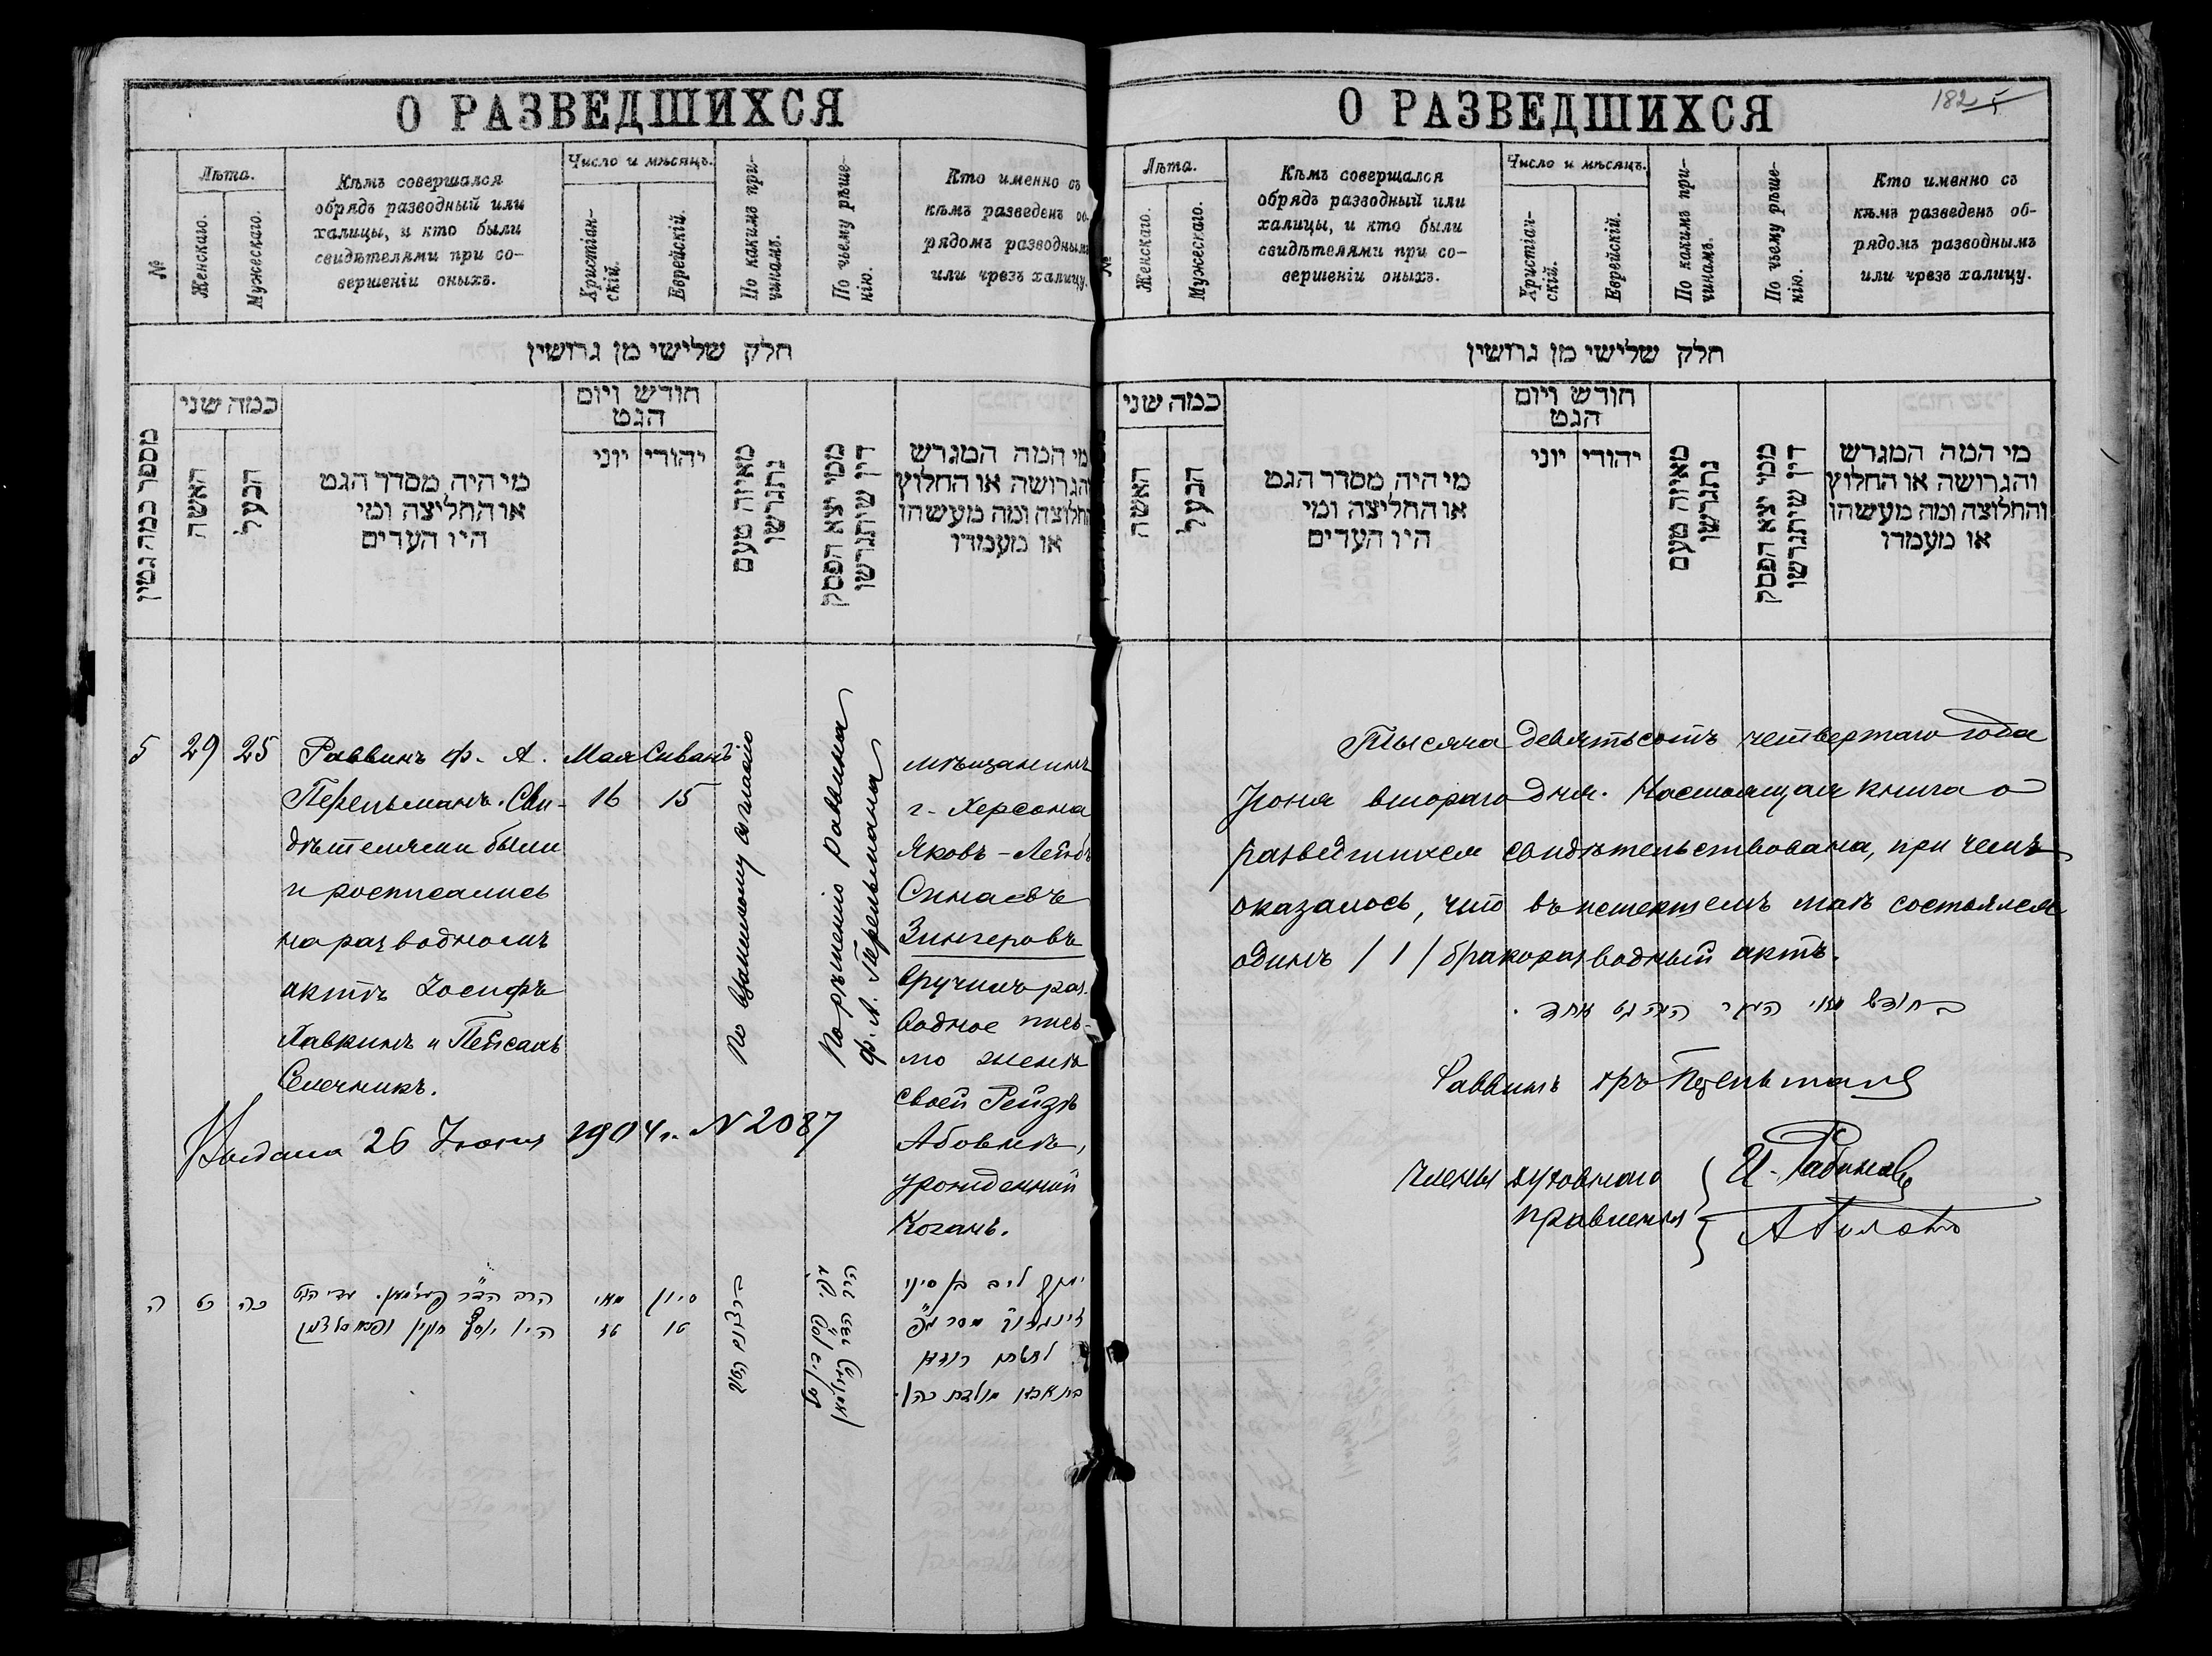 О РАЗВЕДШИХСЯ
№
Лѣта.
Женскаго.
Мужескаго.
Кѣмъ совершался
обрядъ разводный или
халицы, и кто были
свидѣтелями при со-
вершеніи оныхъ.
Число и мѣсяцъ.
Христіан-
скій.
Еврейскій.
По какимъ при-
чинамъ.
По чьему рѣше-
нію.
Кто именно съ
кѣмъ разведенъ об-
рядомъ разводнымъ
или чрезъ халицу.
חלק שלישי מן גרושין
מספר כמה גטין
כמה שני
האשה
הבעל
מי היה מסדר הגט
או החליצה ומי
היו העדים
חודש ויום
הגט
יוני
יהודי
מאיזה טעם
נתגרשו
ממי יצא הפסק
דין שיתגרשו
מי המה המגרש
והגרושה או החלוץ
והחלוצה ומה מעשהו
או מעמדו
5
29
25
Раввинъ Ф. А.
Перельманъ. Сви-
дѣтелями были
и росписались
на разводномъ
актѣ Іосифъ
Лавкинъ и Пейсахъ
Сметникъ.
Мая
16
Сиванъ
15
По взаимному согласію
По рѣшенію раввина
Ф. А. Перельмана
мѣщанинъ
г. Херсона
Яковъ-Лейбъ
Синаевъ
Зингеровъ
вручилъ раз-
водное пись-
мо женѣ
своей Рейзѣ
Абовнѣ,
урожденной
Коганъ.
Выдана 26 Іюня 1904 г. N 2087
ה
כט
כה
מאי
טז
סיון
טו
יעקב ליב בן סיני
בת אבא מולדת כהן.
О РАЗВЕДШИХСЯ
182
5
№
Лѣта.
Женскаго.
Мужескаго.
Кѣмъ совершался
обрядъ разводный или
халицы, и кто были
свидѣтелями при со-
вершеніи оныхъ.
Число и мѣсяцъ.
Христіан-
скій.
Еврейскій.
По какимъ при-
чинамъ.
По чьему рѣше-
нію.
Кто именно съ
кѣмъ разведенъ об-
рядомъ разводнымъ
или чрезъ халицу.
חלק שלישי מן גרושין
כמה שני
האשה
הבעל
מי היה מסדר הגט
או החליצה ומי
היו העדים
חודש ויום
הגט
יוני
יהודי
מאיזה טעם
נתגרשו
ממי יצא הפסק
דין שיתגרשו
מי המה המגרש
והגרושה או החלוץ
והחלוצה ומה מעשהו
או מעמדו
Тысяча девятьсотъ четвертаго года
Іюня втораго дня. Настоящая книга о
разведшихся свидѣтельствована, при чемъ
оказалось, что въ истекшемъ маѣ состоялся
одинъ / 1 / бракоразводный актъ.
בחודש מאי היה גט אחד.
Раввинъ Перельманъ
Члены духовнаго
правленія